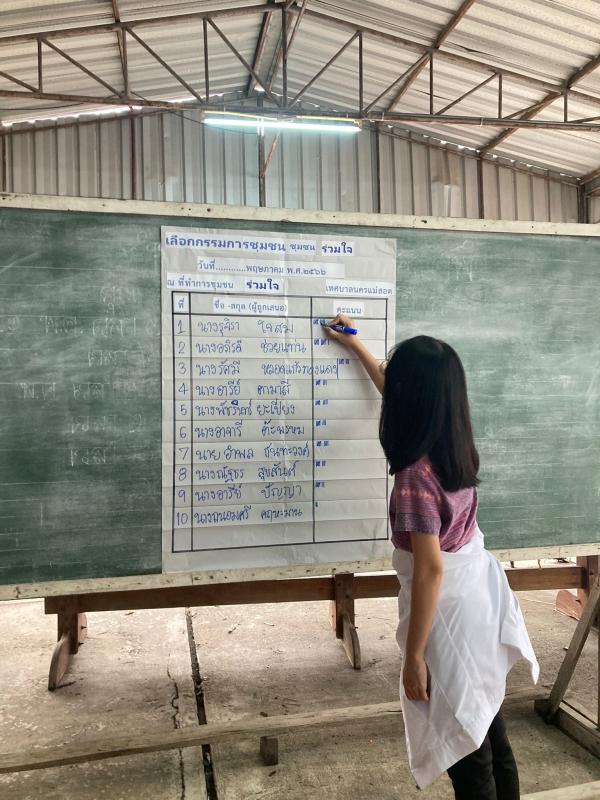 เลือกกรรมการชุมชน ชุมชน ร่วมใจ
วันที่............พฤษภาคม พ.ศ.๒๕๖๖
ณ ที่ทำการชุมชน ร่วมใจ เทศบาลนครแม่สอด
ที่ ชื่อ -สกุล (ผู้ถูกเสนอ) คะแนน
1 นางรุจิรา ใจสม
2 นางอภิรดี ช่วยแท่น
3 นางรัศมี หลอดแก้วทองแดง
4 นางอารีย์ ตามาสี
5 นางพัชรินทร์ ยะเปียง
6 นางอาจารี ต๊ะพรหม
7 นาย อำพล จันทะวงศ์
8 นางณัฐธร สุขสันต์
9 นางอารีย์ ปัญญา
10 นางถนอมศรี คฤหะมาน